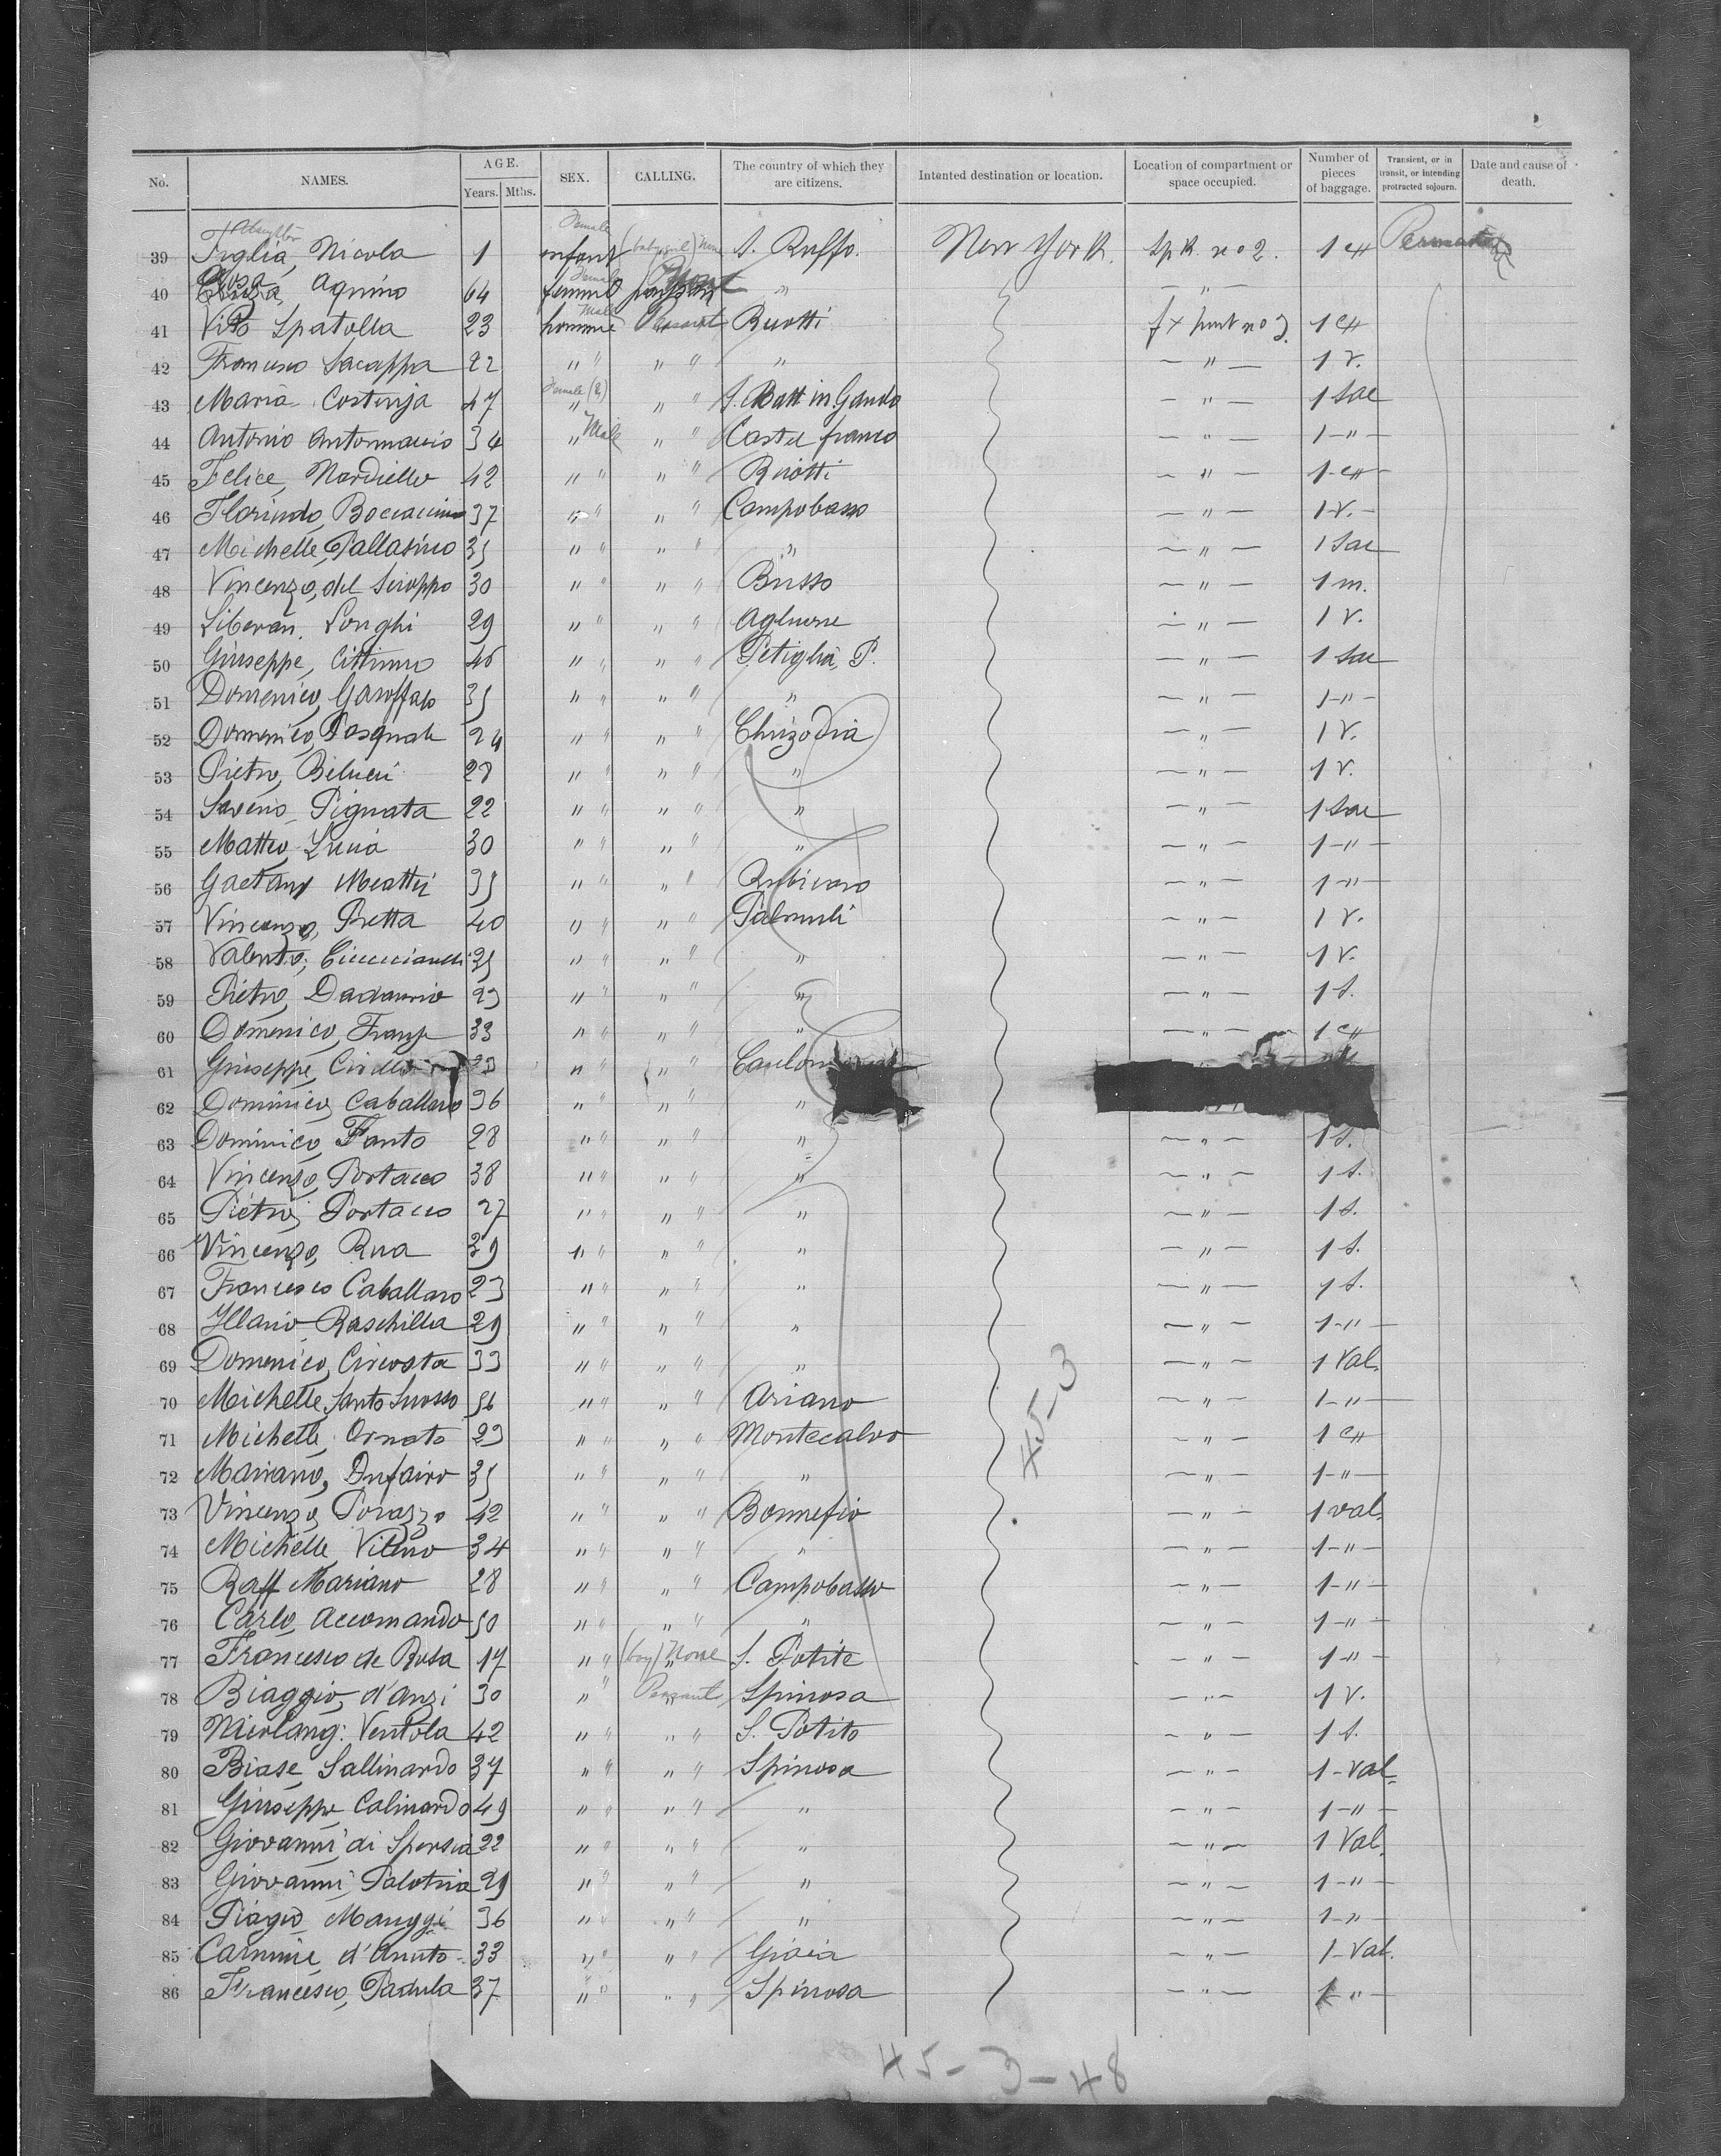 No. NAMES. AGE. Years. Mths. SEX. CALLING. The country of which they are citizens. Intented destination or location. Location of compartment or space occupied. Number of pieces of baggage. Transient, or in transit, or intending protracted sojourn. Date and cause of death.
daughter Female
39 Figlia, Nicola 1 enfant S. Ruffo. New York. 1
40 Rosa, Aquino 64 femme Female "  — " —
41 Vito Spatolla 23 homme Male Peasant Buotti 1
42 Francesco Sacappa 22 " " " " " — " — 1 V.
43 Maria Costinja 47 Female (?) " " " — " — 1 Sac
44 Antonio Antonnaccio 34 " Male " " Castel franco — " — 1 - " -
45 Felice, Nardiello 42 " " " " — " — 1
46 Florindo, Bocciaccino 37 " " " " Campobasso — " — 1 V. -
47 Michelle, Pallasino 35 " " " " " — " — 1 Sac
48 Vincenzo, del Scioppo 30 " " " " Busso — " — 1 m.
49 Longhi 29 " " " " Agluone — " — 1 V.
50 Giuseppe, Cittinno 46 " " " " Petiglia, P. — " — 1 Sac
51 Domenico, Garoffalo 35 " " " " " — " — 1 - " -
52 Domenico, Pasquale 24 " " " " — " — 1 V.
53 Pietro, Belucci 28 " " " " " — " — 1 V.
54 Pignata 22 " " " " " — " — 1 Sac
55 Matteo, Lucia 30 " " " " " — " — 1 - " -
56 Gaetano Meattei 35 " " " " — " — 1 - " -
57 Vincenzo, Pretta 40 " " " " Palmuli — " — 1 V.
58 35 " " " " " — " — 1 V.
59 Pietro, Dadaurio 23 " " " " " — " — 1 S.
60 Domenico, 33 " " " " " — " — 1
61 Giuseppe, Cirillo 23 " " " "
62 Dominico, Caballaro 36 " " " " "
63 Dominico, Fanto 28 " " " " " — " — 1 S.
64 Vincenzo, Portaceo 38 " " " " " — " — 1 S.
65 Pietro, Portaceo 27 " " " " " — " — 1 S.
66 Vincenzo, Rua 39 " " " " " — " — 1 S.
67 Francesco Caballaro 23 " " " " " — " — 1 S.
68 Illario Raschilla 29 " " " " " — " — 1 - " -
69 Domenico, Circosta 33 " " " " " — " — 1 Val.
70 Michelle, Santo Suosso 56 " " " " Ariano — " — 1 - " -
71 Michelle, Ornato 23 " " " " Montecalvo — " — 1
72 Mariano, 35 " " " " " — " — 1 - " -
73 Vincenzo, Porazzo 42 " " " " Bonnefio — " — 1 Val.
74 Michelle, 34 " " " " " — " — 1 - " -
75 Raff Mariano 28 " " " " Campobasso — " — 1 - " -
76 Carlo, Accomando 50 " " " " " — " — 1 - " -
77 Francesco de Rosa 17 " " (boy) None S. Potite — " — 1 - " -
78 Biaggio, d'Anzi 30 " " Peasants Spinosa — " — 1 V.
79 Ventola 42 " " " " S. Potito — " — 1 S.
80 Biase, Sallinardo 37 " " " " Spinosa — " — 1 - Val.
81 Giuseppe Calinardo 49 " " " " " — " — 1 - " -
82 Giovanni, di Spersia 22 " " " " " — " — 1 Val.
83 Giovanni, Palotria 29 " " " " " — " — 1 - " -
84 Piagio Mauggi 36 " " " " " — " — 1 - " -
85 Carmine, d'Anuto 33 " " " " Gioia — " — 1 - Val.
86 Francesco, Padula 37 " " " " Spinosa — " — 1 - " -
45-3
45-3-48